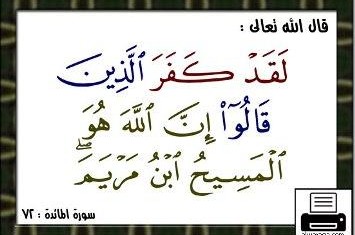 قال الله تعالى :
لَقَدْ كَفَرَ ٱلَّذِينَ
قَالُوٓاْ إِنَّ ٱللَّهَ هُوَ
ٱلْمَسِيحُ ٱبْنُ مَرْيَمَۖ
سورة المائدة : ٧٢